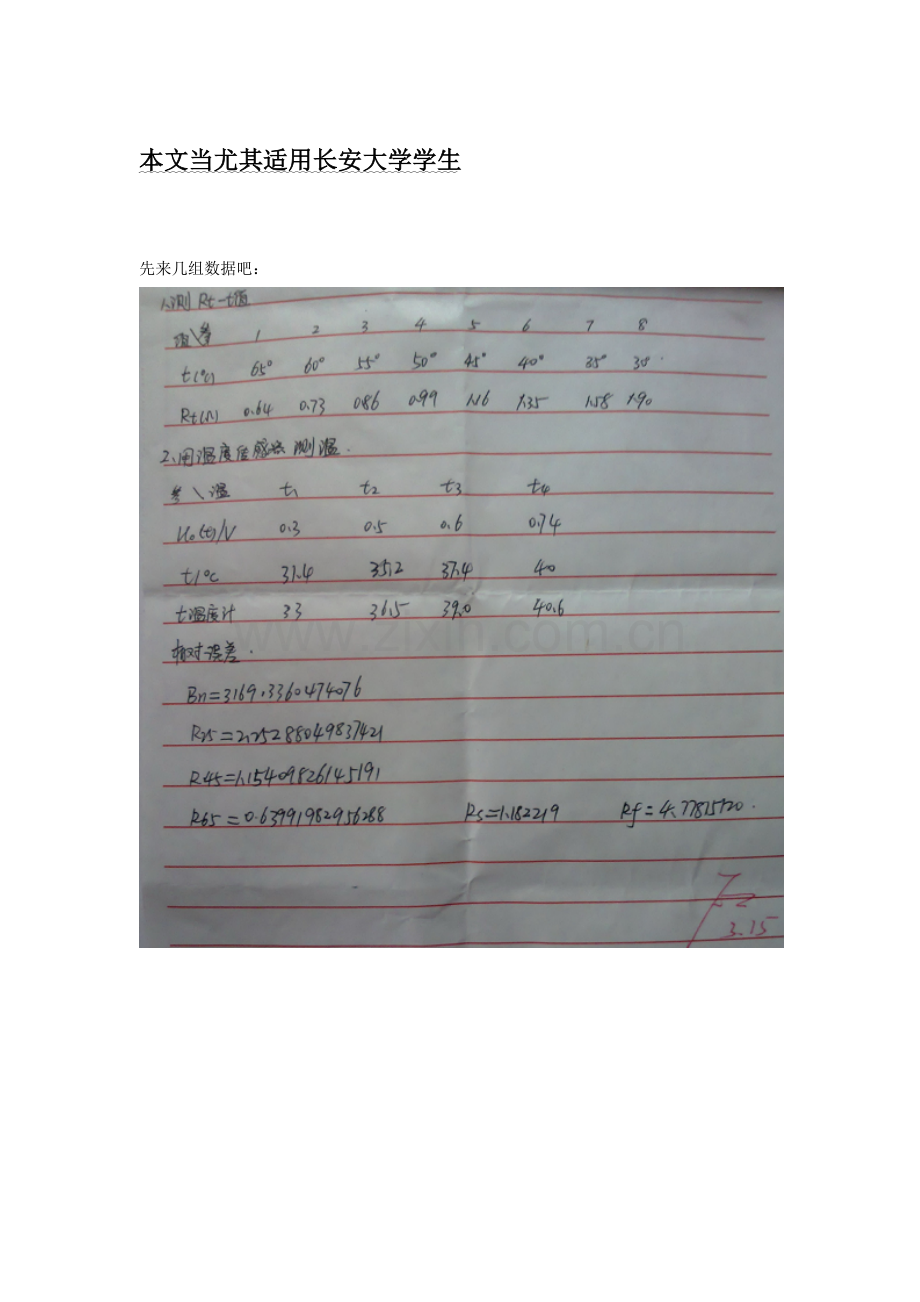 本文当尤其适用长安大学学生
先来几组数据吧：
1、测 Rt-t值
1 2 3 4 5 6 7 8
t(℃) 65° 60° 55° 50° 45° 40° 35° 30°
Rt(Ω) 0.64 0.73 0.86 0.99 1.16 1.35 1.58 1.90
2、用温度传感器测温.
参\温 t1 t2 t3 t4
U₀(t)/V 0.3 0.5 0.6 0.74
t/℃ 31.4 35.2 37.4 40
t温度计 33 36.5 39.0 40.6
www.zixin.com.cn
相对误差.
Bn=3169.3360474076
R25=2.25288049837421
R45=1.15409826145191
R65=0.63991982956288 Rs=1.182219 Rf=4.77815720.
3.15